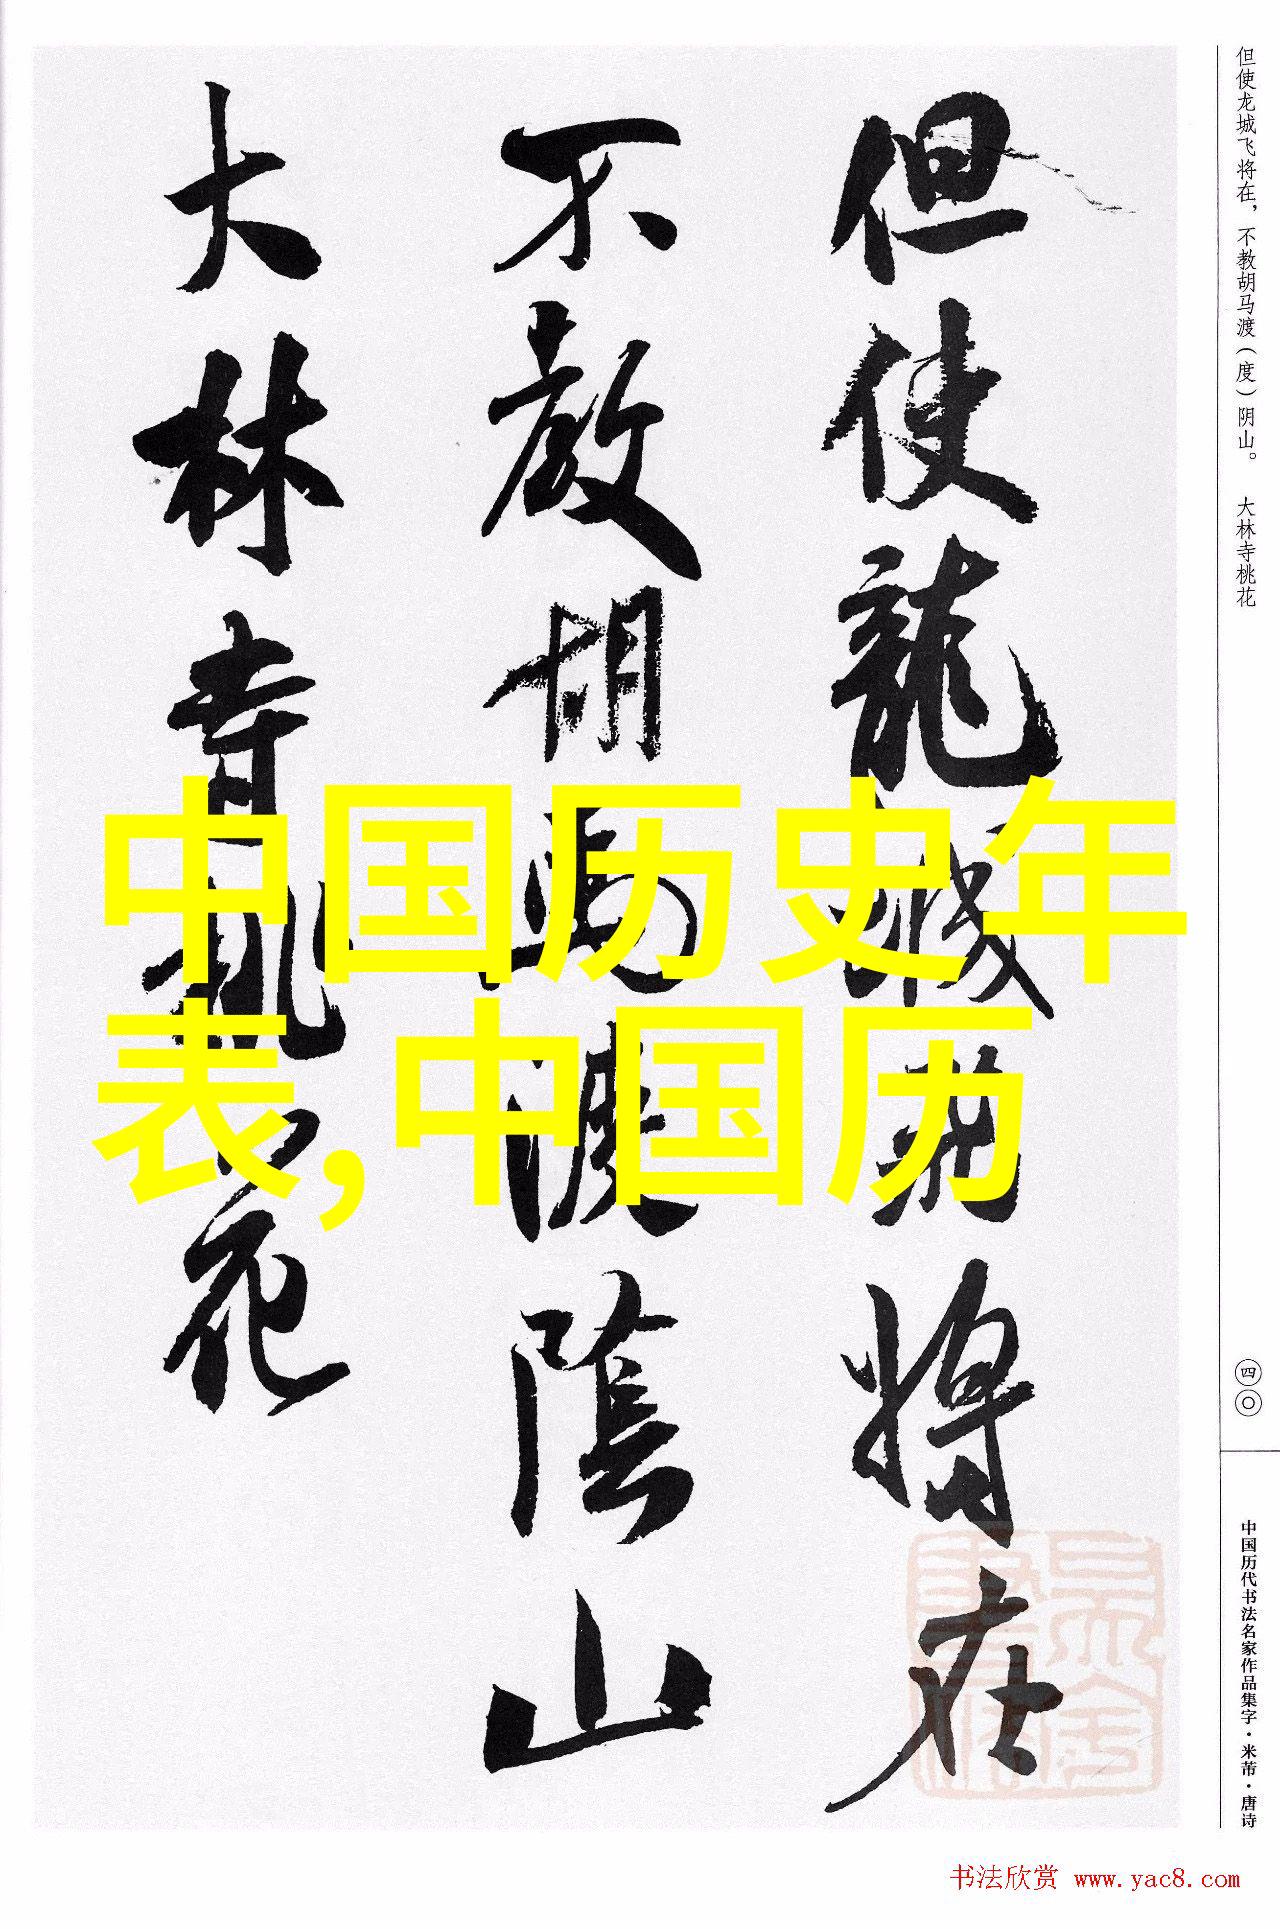 但使龍城飛將在
不教胡馬渡陰山
大林寺桃花
但使龙城飞将在，不教胡马渡（度）阴山。 大林寺桃花
四〇
中国历代书法名家作品集字·米芾·唐诗
中国历史年
表,中国历
书法欣赏 www.yac8.com